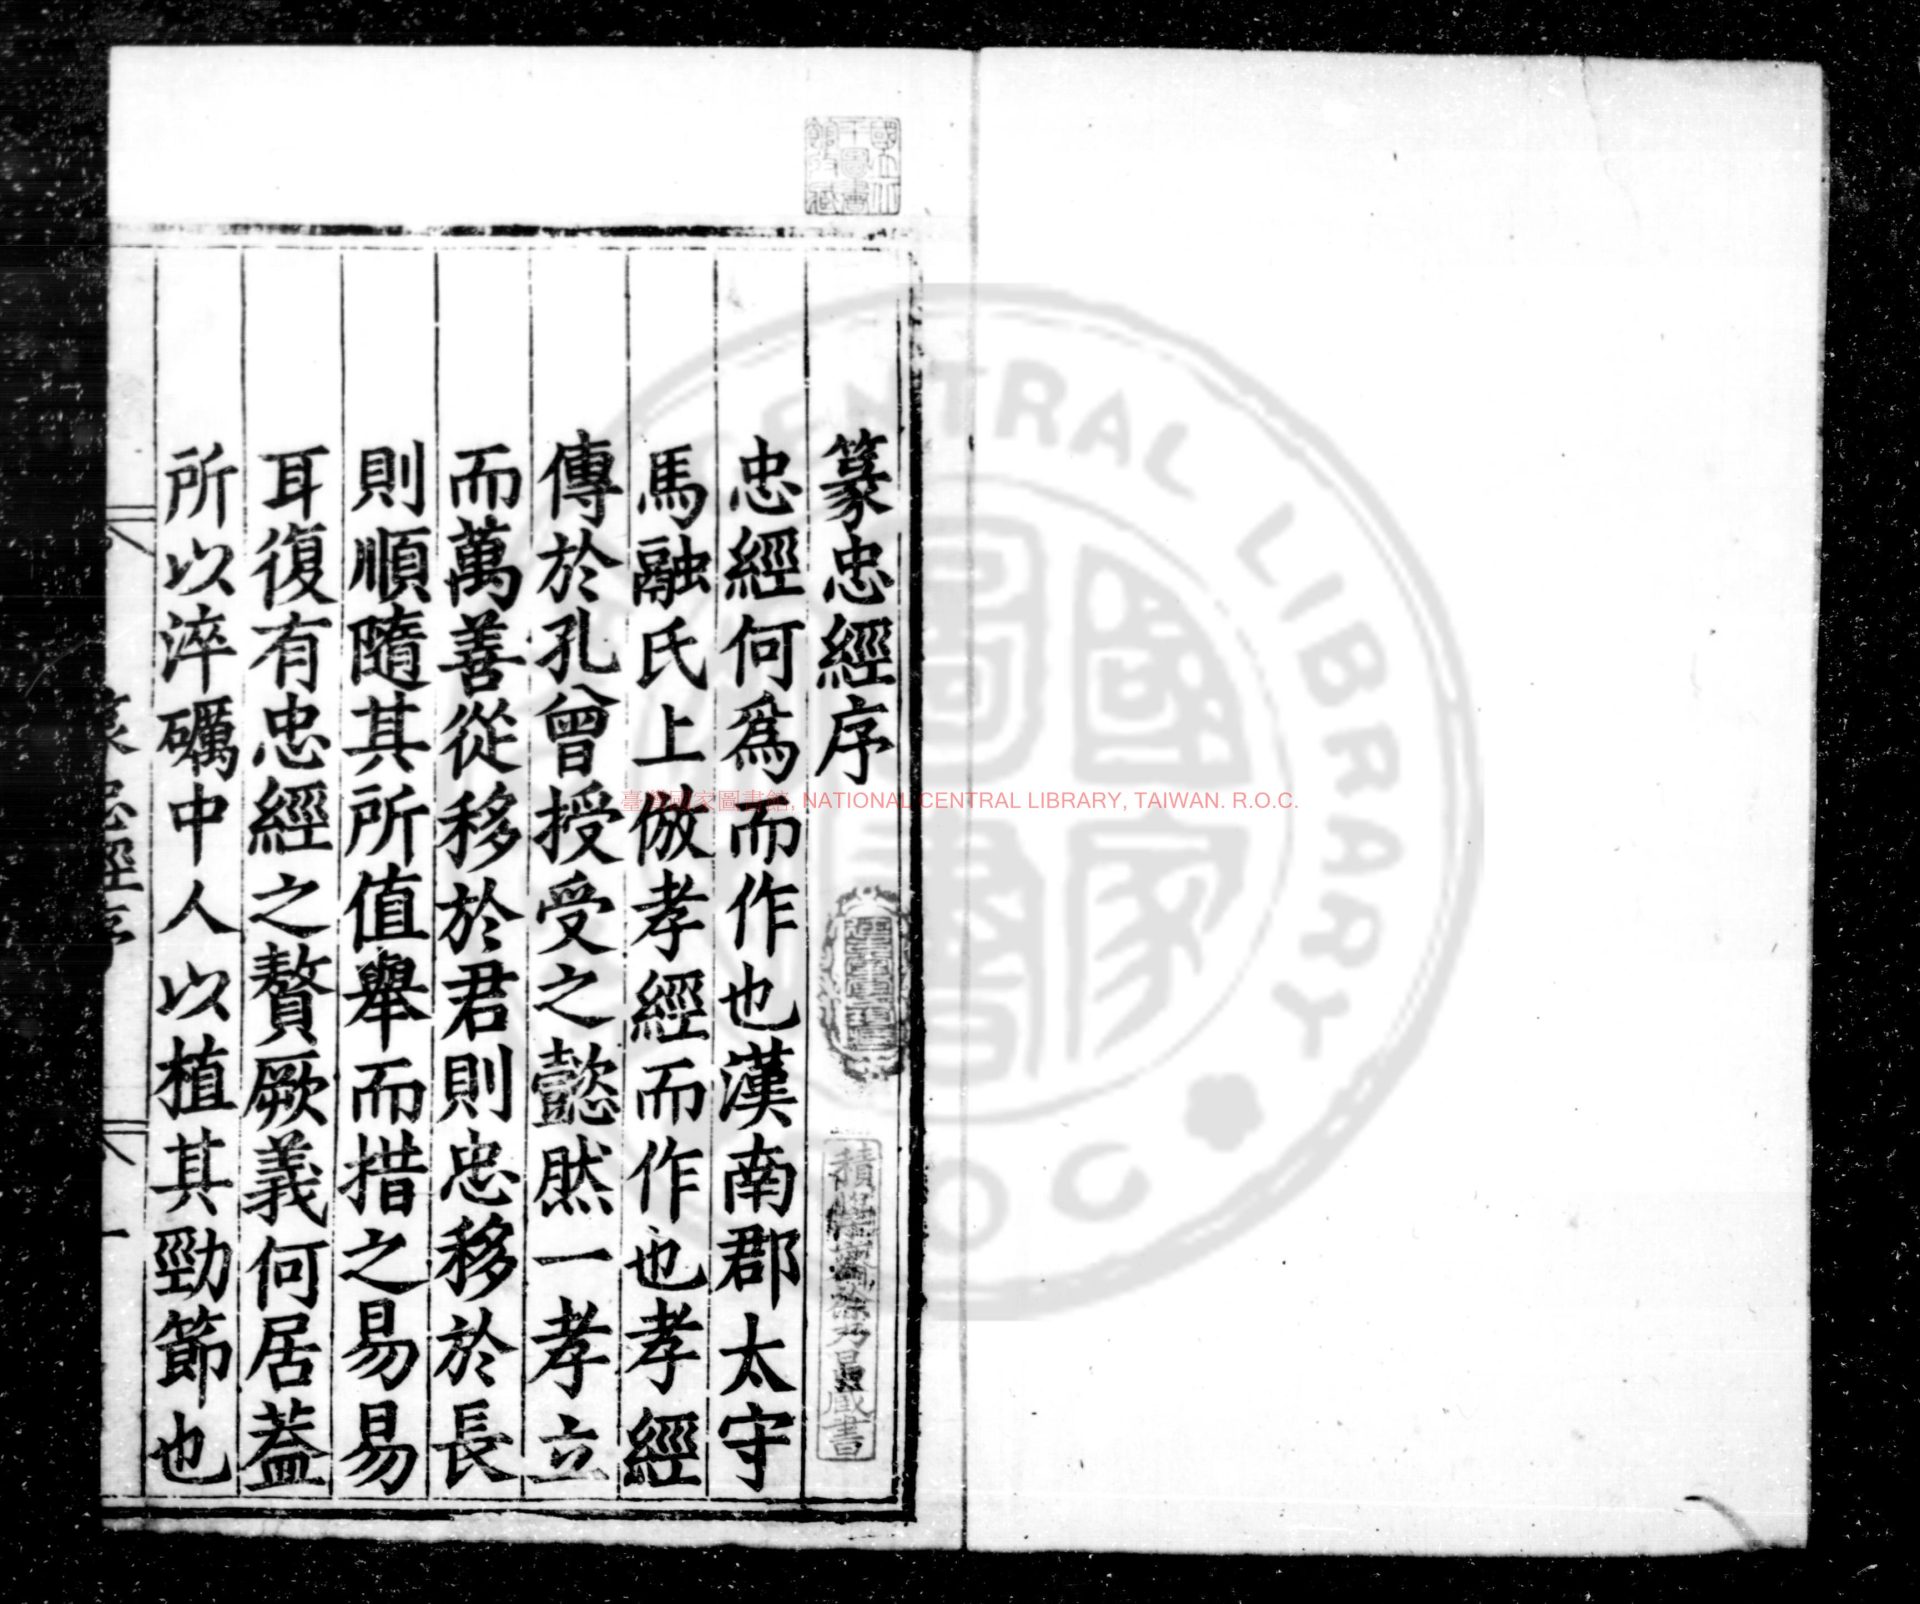 篆忠經序
忠經何爲而作也漢南郡太守
馬融氏上倣孝經而作也孝經
傳於孔曾授受之懿然一孝立
而萬善從移於君則忠移於長
則順隨其所值舉而措之易易
耳復有忠經之贅厥義何居葢
所以淬礪中人以植其勁節也
篆忠經序
一
積學齋徐乃昌藏書
臺灣國家圖書館, NATIONAL CENTRAL LIBRARY, TAIWAN. R.O.C.
CENTRAL LIBRARY
國家圖書